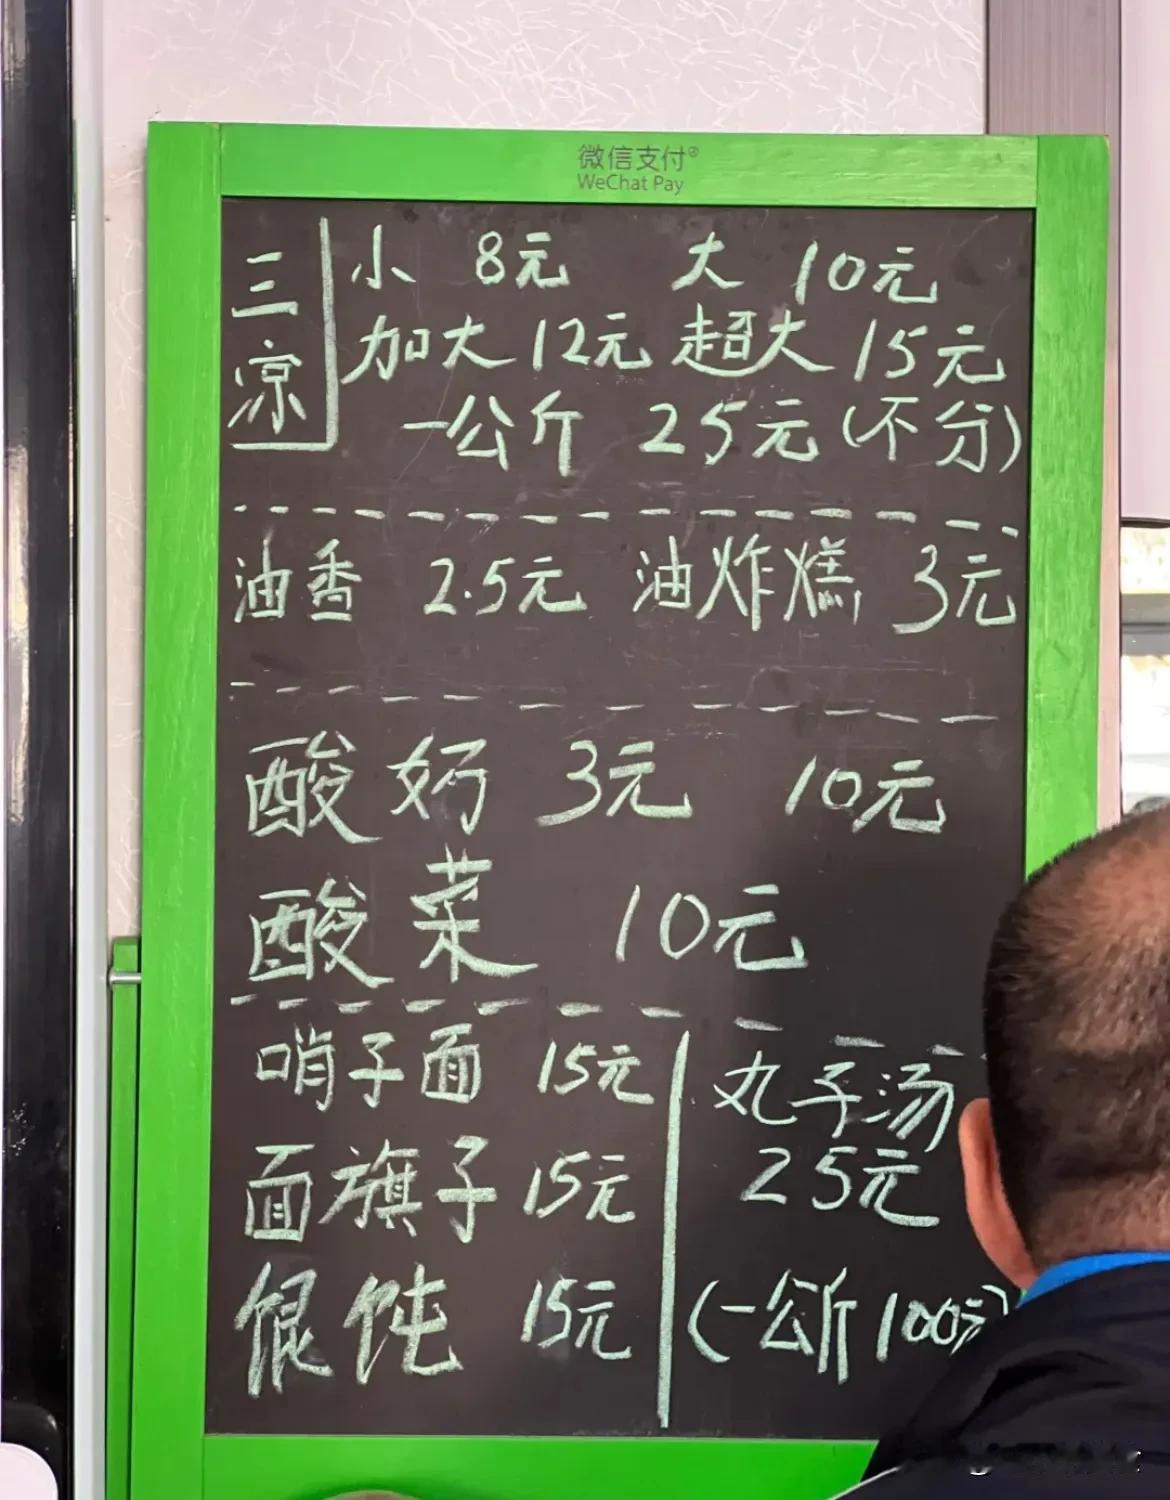 微信支付®
WeChat Pay
三凉
小 8元 大 10元
加大 12元 超大 15元
一公斤 25元 (不分)
油香 2.5元 油炸糕 3元
酸奶 3元 10元
酸菜 10元
哨子面 15元
面旗子 15元
馄饨 15元
丸子汤
25元
(一公斤 100元)